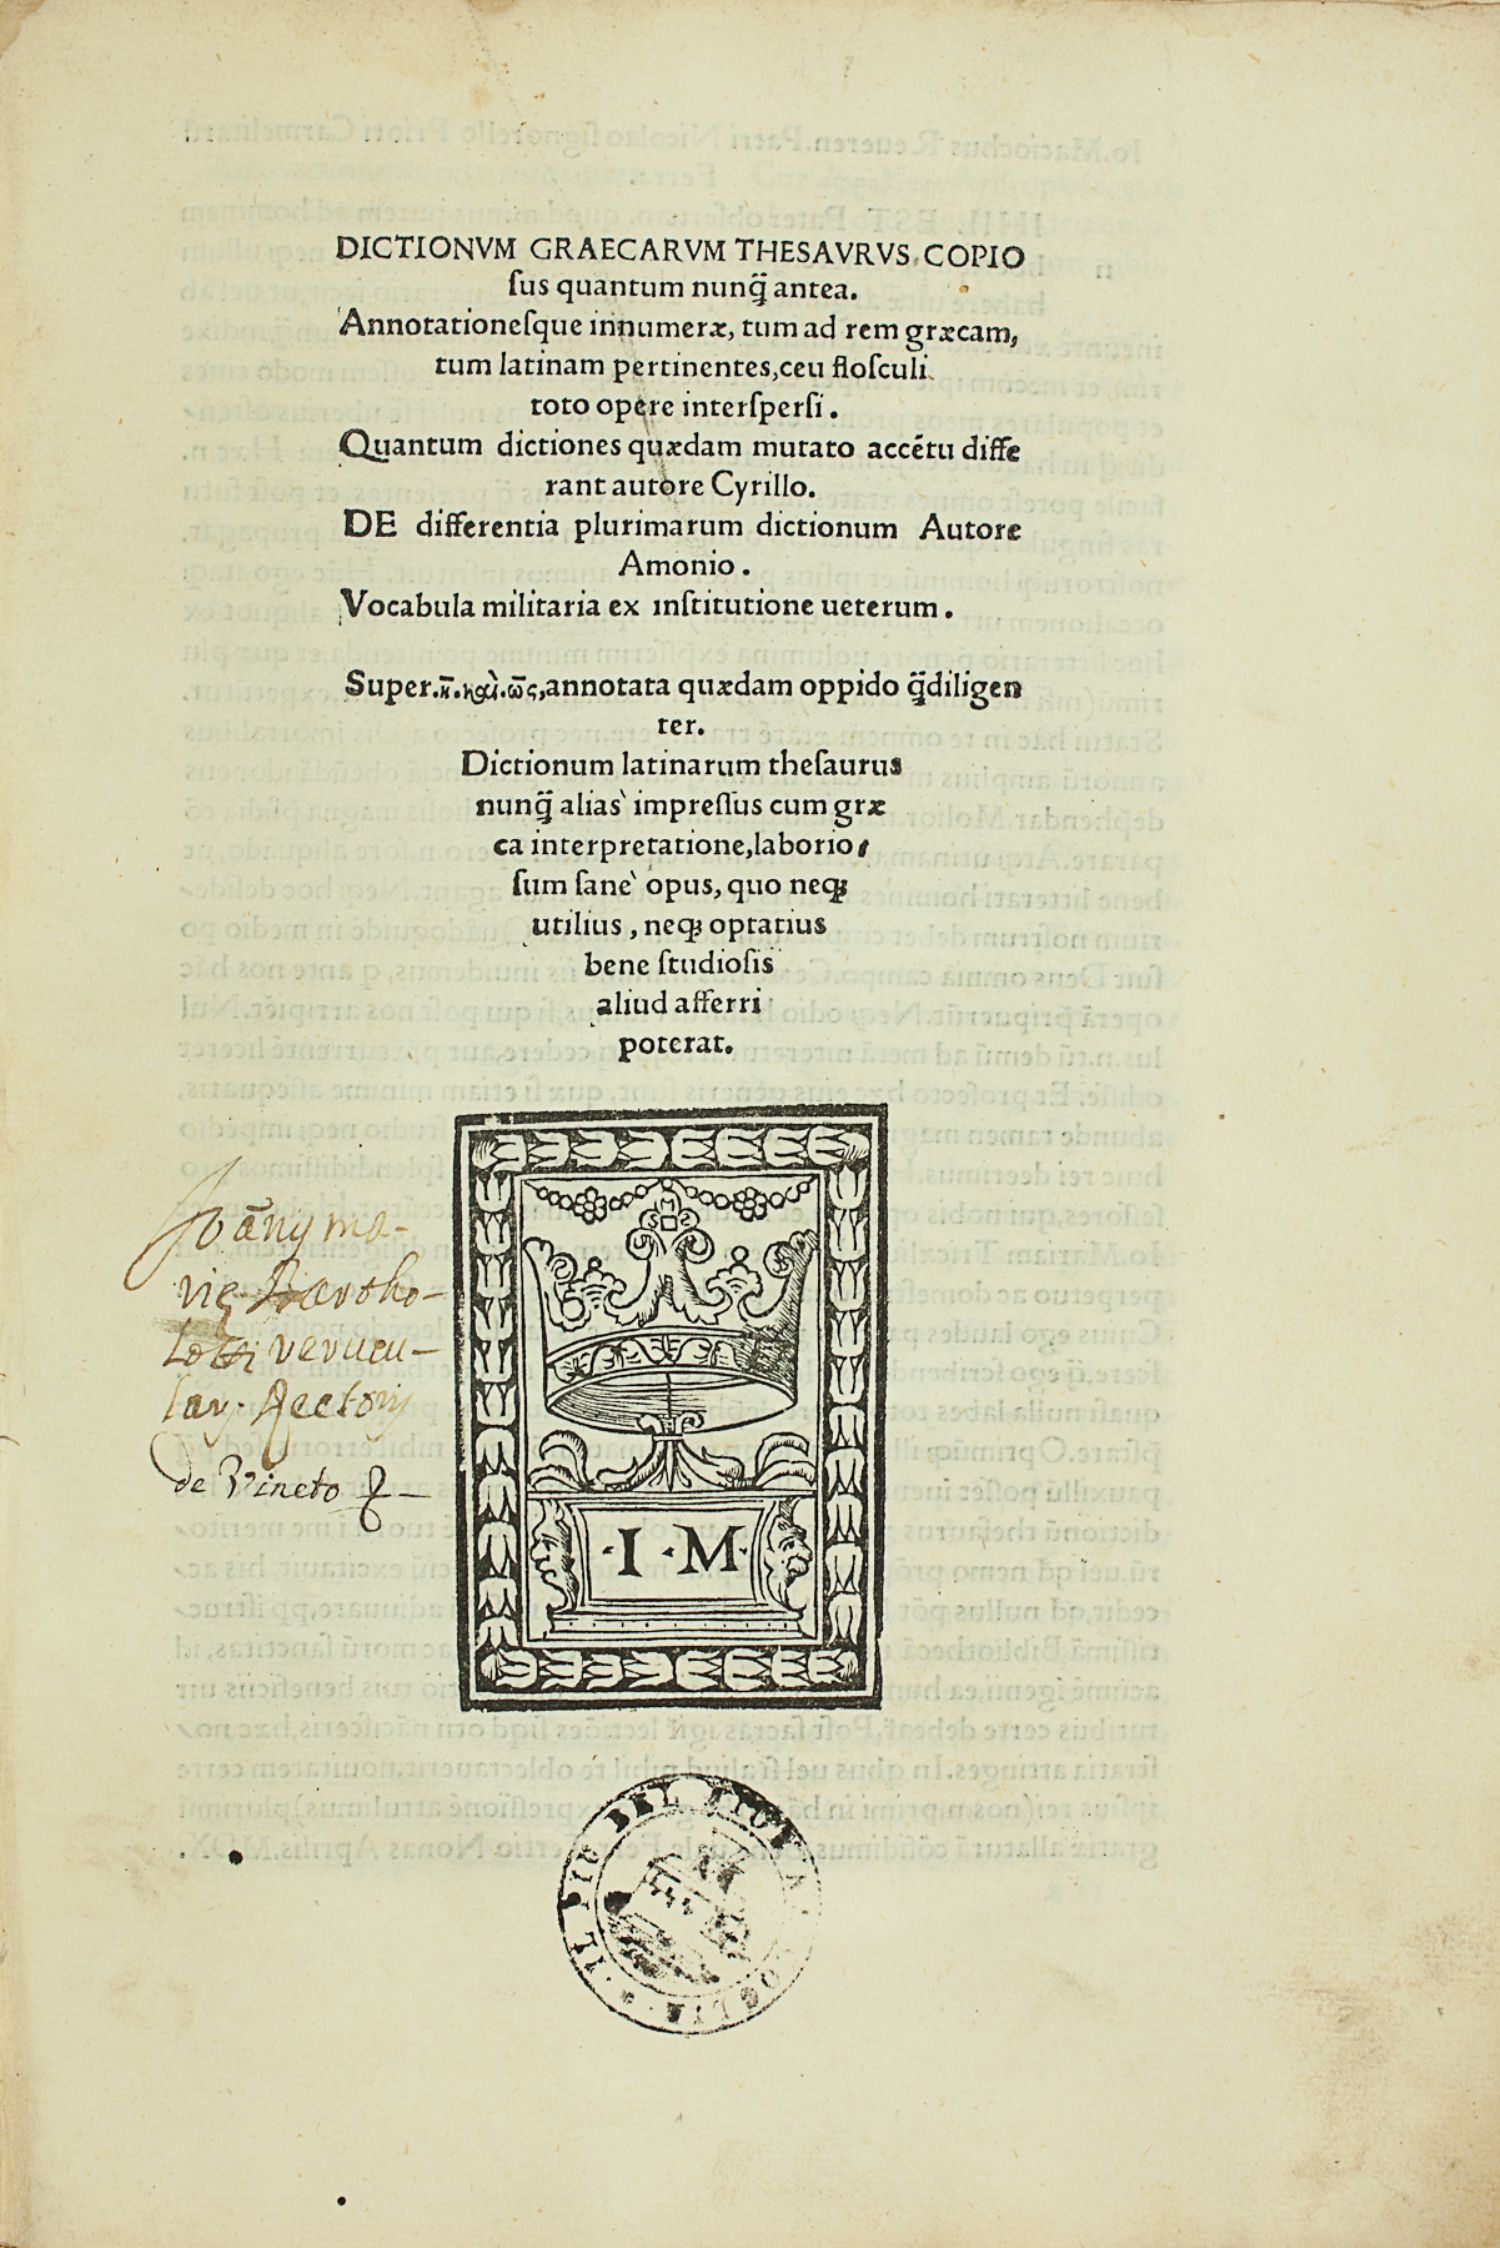 DICTIONVM GRAECARVM THESAVRVS COPIO
ſus quantum nunq̃ antea.
Annotationeſque innumeræ, tum ad rem græcam,
tum latinam pertinentes,ceu floſculi
toto opere interſperſi.
Quantum dictiones quædam mutato accētu diffe
rant autore Cyrillo.
DE differentia plurimarum dictionum Autore
Amonio.
Vocabula militaria ex inſtitutione ueterum.
Super.κ̄.καὶ.ω̄ς,annotata quædam oppido q̃diligen
ter.
Dictionum latinarum theſaurus
nunq̃ alias̀ impreſſus cum græ
ca interpretatione,laborio,
ſum ſanè opus, quo neq;
utilius, neq; optatius
bene ſtudioſis
aliud afferri
poterat.
S M Z
Joāny ma-
rie Bartho-
Lotti verucu-
lar. Rectoris
de Vineto
·I·M·
IL PIO DEL